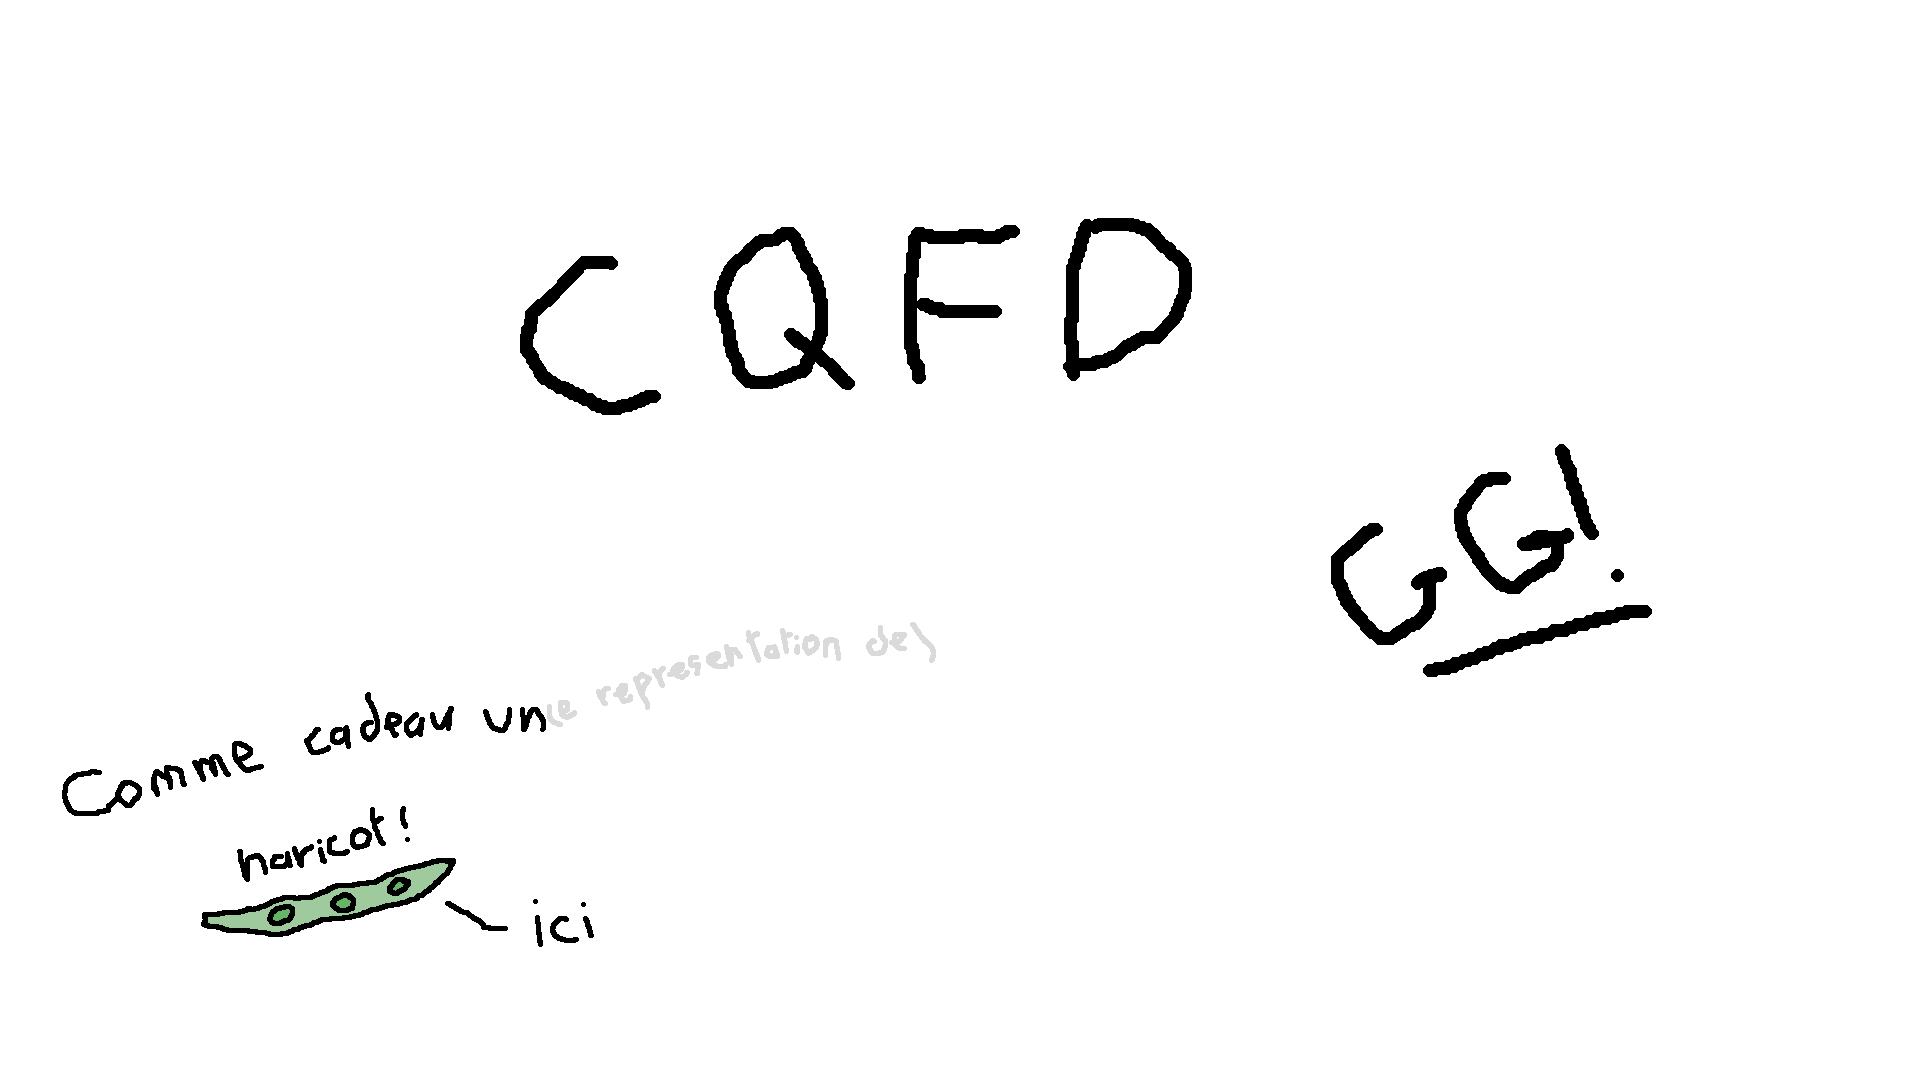 CQFD
GG!
Comme cadeau un(e representation de)
haricot!
ici